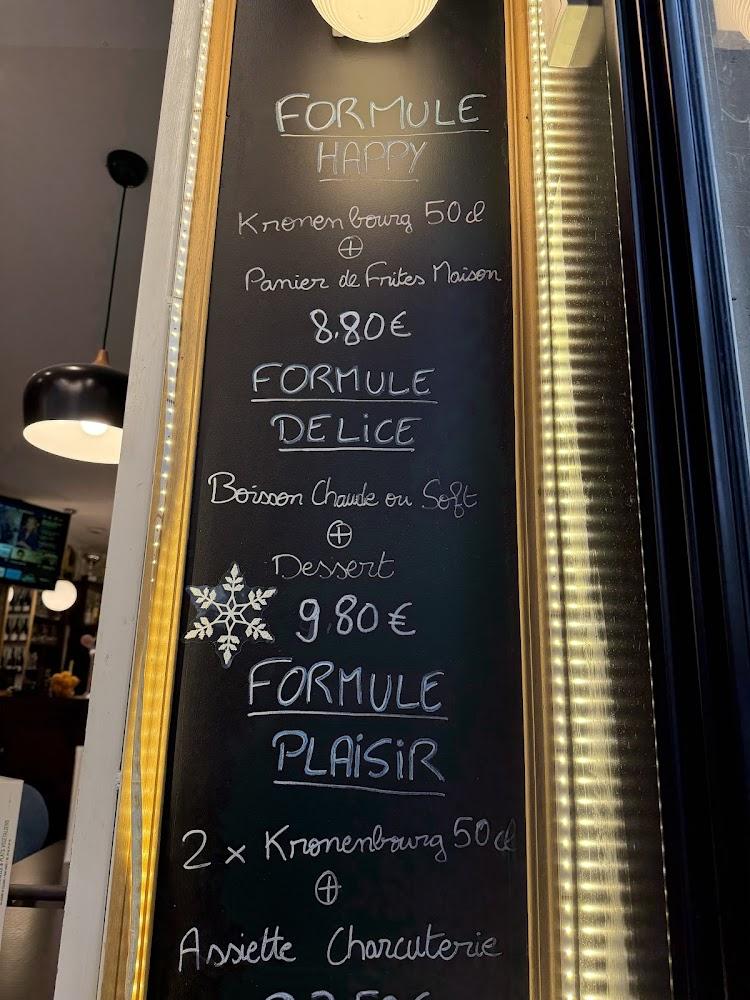 FORMULE
HAPPY
Kronenbourg 50cl
+
Panier de Frites Maison
8.80€
FORMULE
DELiCE
Boisson Chaude ou Soft
+
Dessert
9.80€
FORMULE
PLAiSiR
2 x Kronenbourg 50cl
+
Assiette Charcuterie